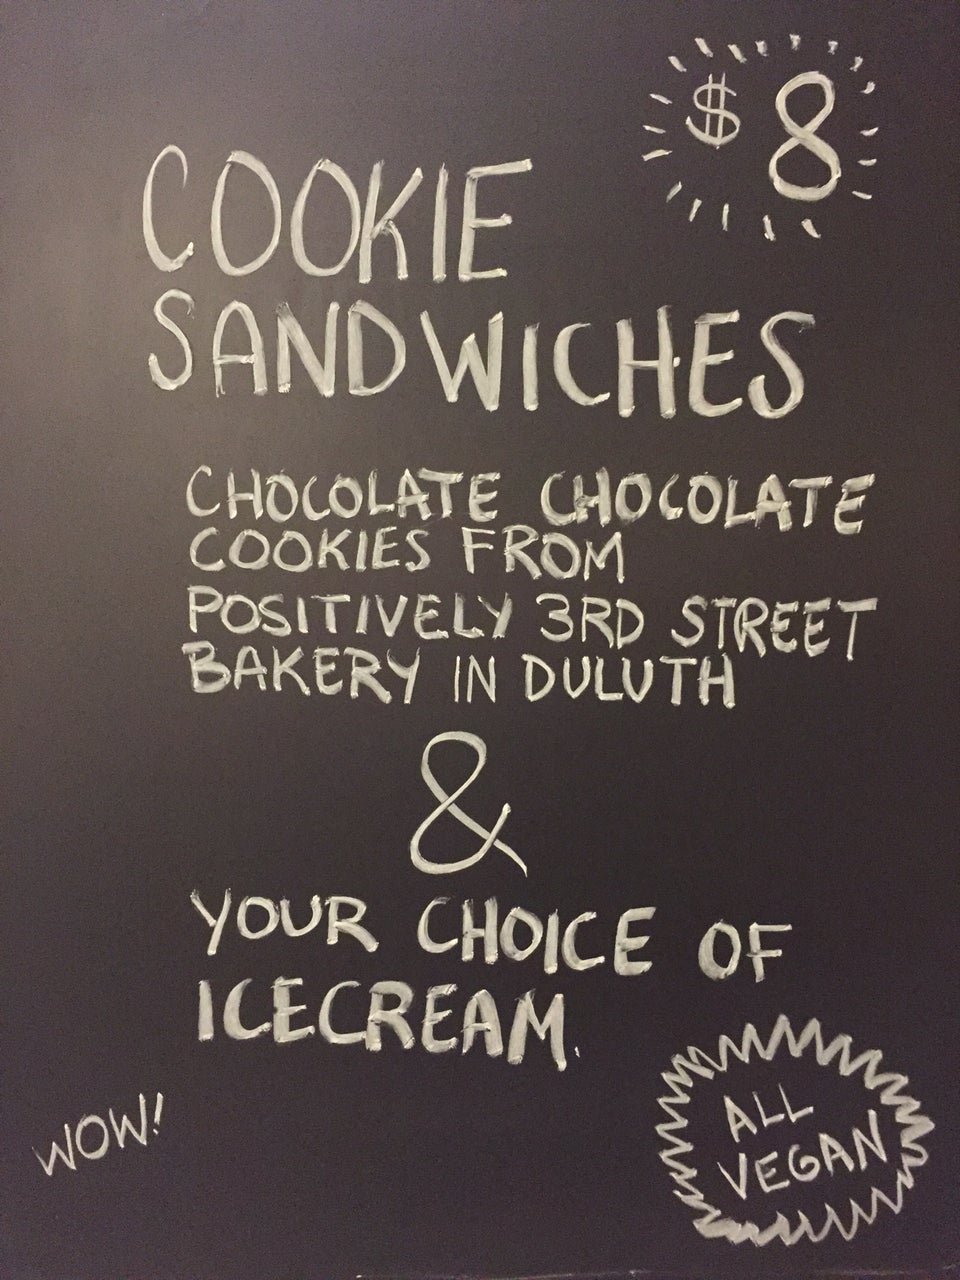 $ 8
COOKIE
SANDWICHES
CHOCOLATE CHOCOLATE
COOKIES FROM
POSITIVELY 3RD STREET
BAKERY IN DULUTH
&
YOUR CHOICE OF
ICECREAM.
WOW!
ALL
VEGAN